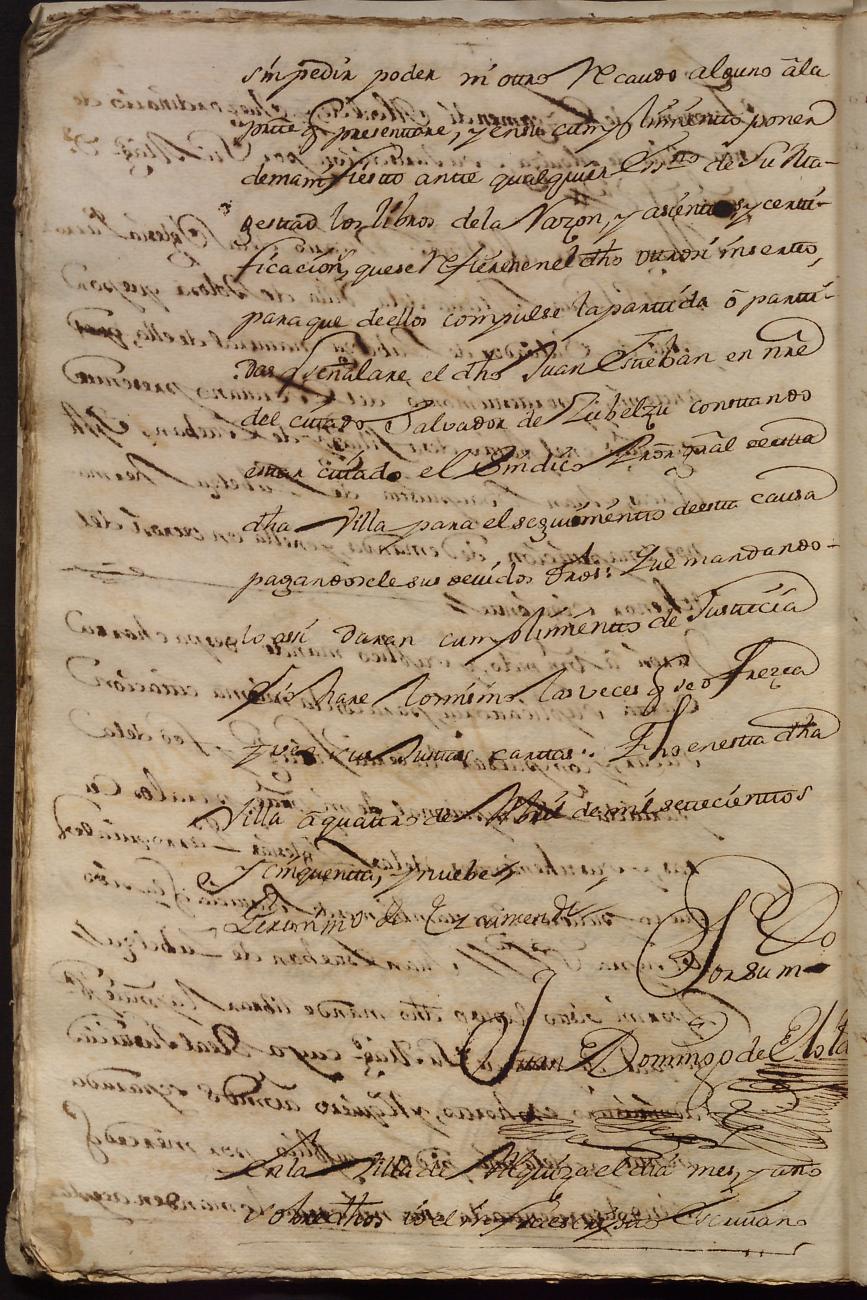 sin pedir poder ni otro Recaudo alguno â la
parte q presentare, y en su cumplimiento poner
de manifiesto ante qualquier Essno de Su Ma-
gestad los libros de la Razon, y asientos y certi-
ficacion, que se Refieren en el dho otrosi inserto,
para que de ellos compulse la partida ô parti-
das q señalare el dho Juan Esteban en nre
del citado Salvador de Zubelzu constando
estar citado el Sindico Prōr gñal de esta
dha Villa para el seguimiento de esta causa
pagandosele sus devidos dros: Que mandando-
lo assi daran cumplimiento de Justicia
q io hare lo mismo las veces q se ofrezca
ver sus Justas cartas. Fho en esta dha
Villa â quatro de Abril de mil setecientos
y cinquenta, y nueve
Geronimo de Ezcamendi
Por su m
Juan Domingo de
En la Villa de Vsquiza el dia mes, y año
sobredhos io el infraescripto Escrivano